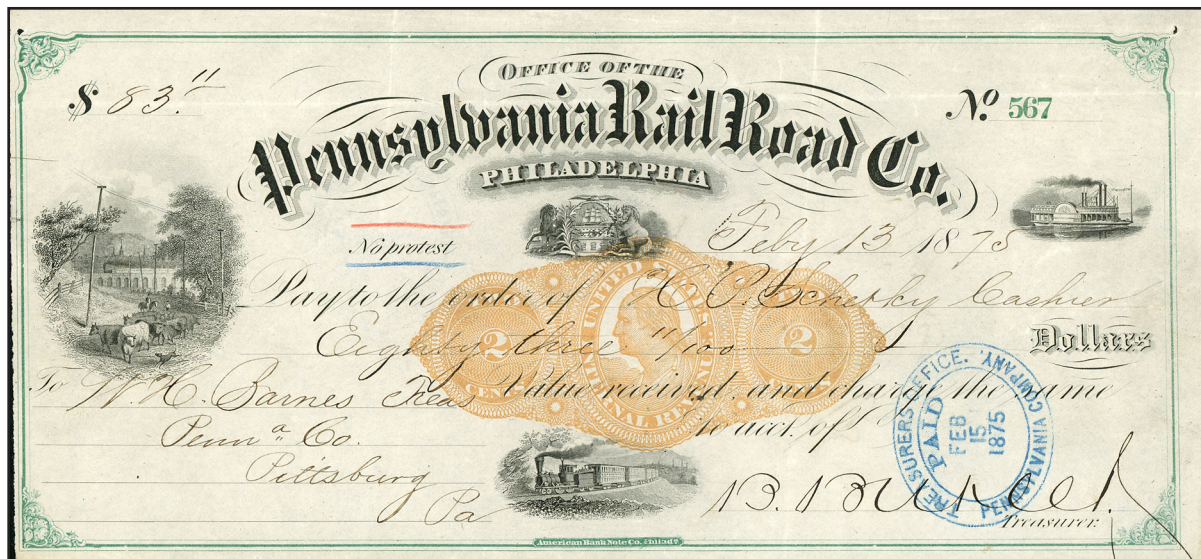 OFFICE OF THE
$ 83.11
Nº 567
Pennsylvania Rail Road Co.
PHILADELPHIA
No protest
Feby 13 1875
Pay to the order of H. P. Schetky Cashier
Eighty three 11/100 Dollars
UNITED STATES INTERNAL REVENUE
2 2
CENTS
To W. H. Barnes Treas
Value received and charge the same
Penna Co.
to acct. of
Pittsburg
Pa
TREASURERS OFFICE.
PAID
FEB
15
1875
PENNSYLVANIA COMPANY.
Treasurer.
American Bank Note Co. Philada